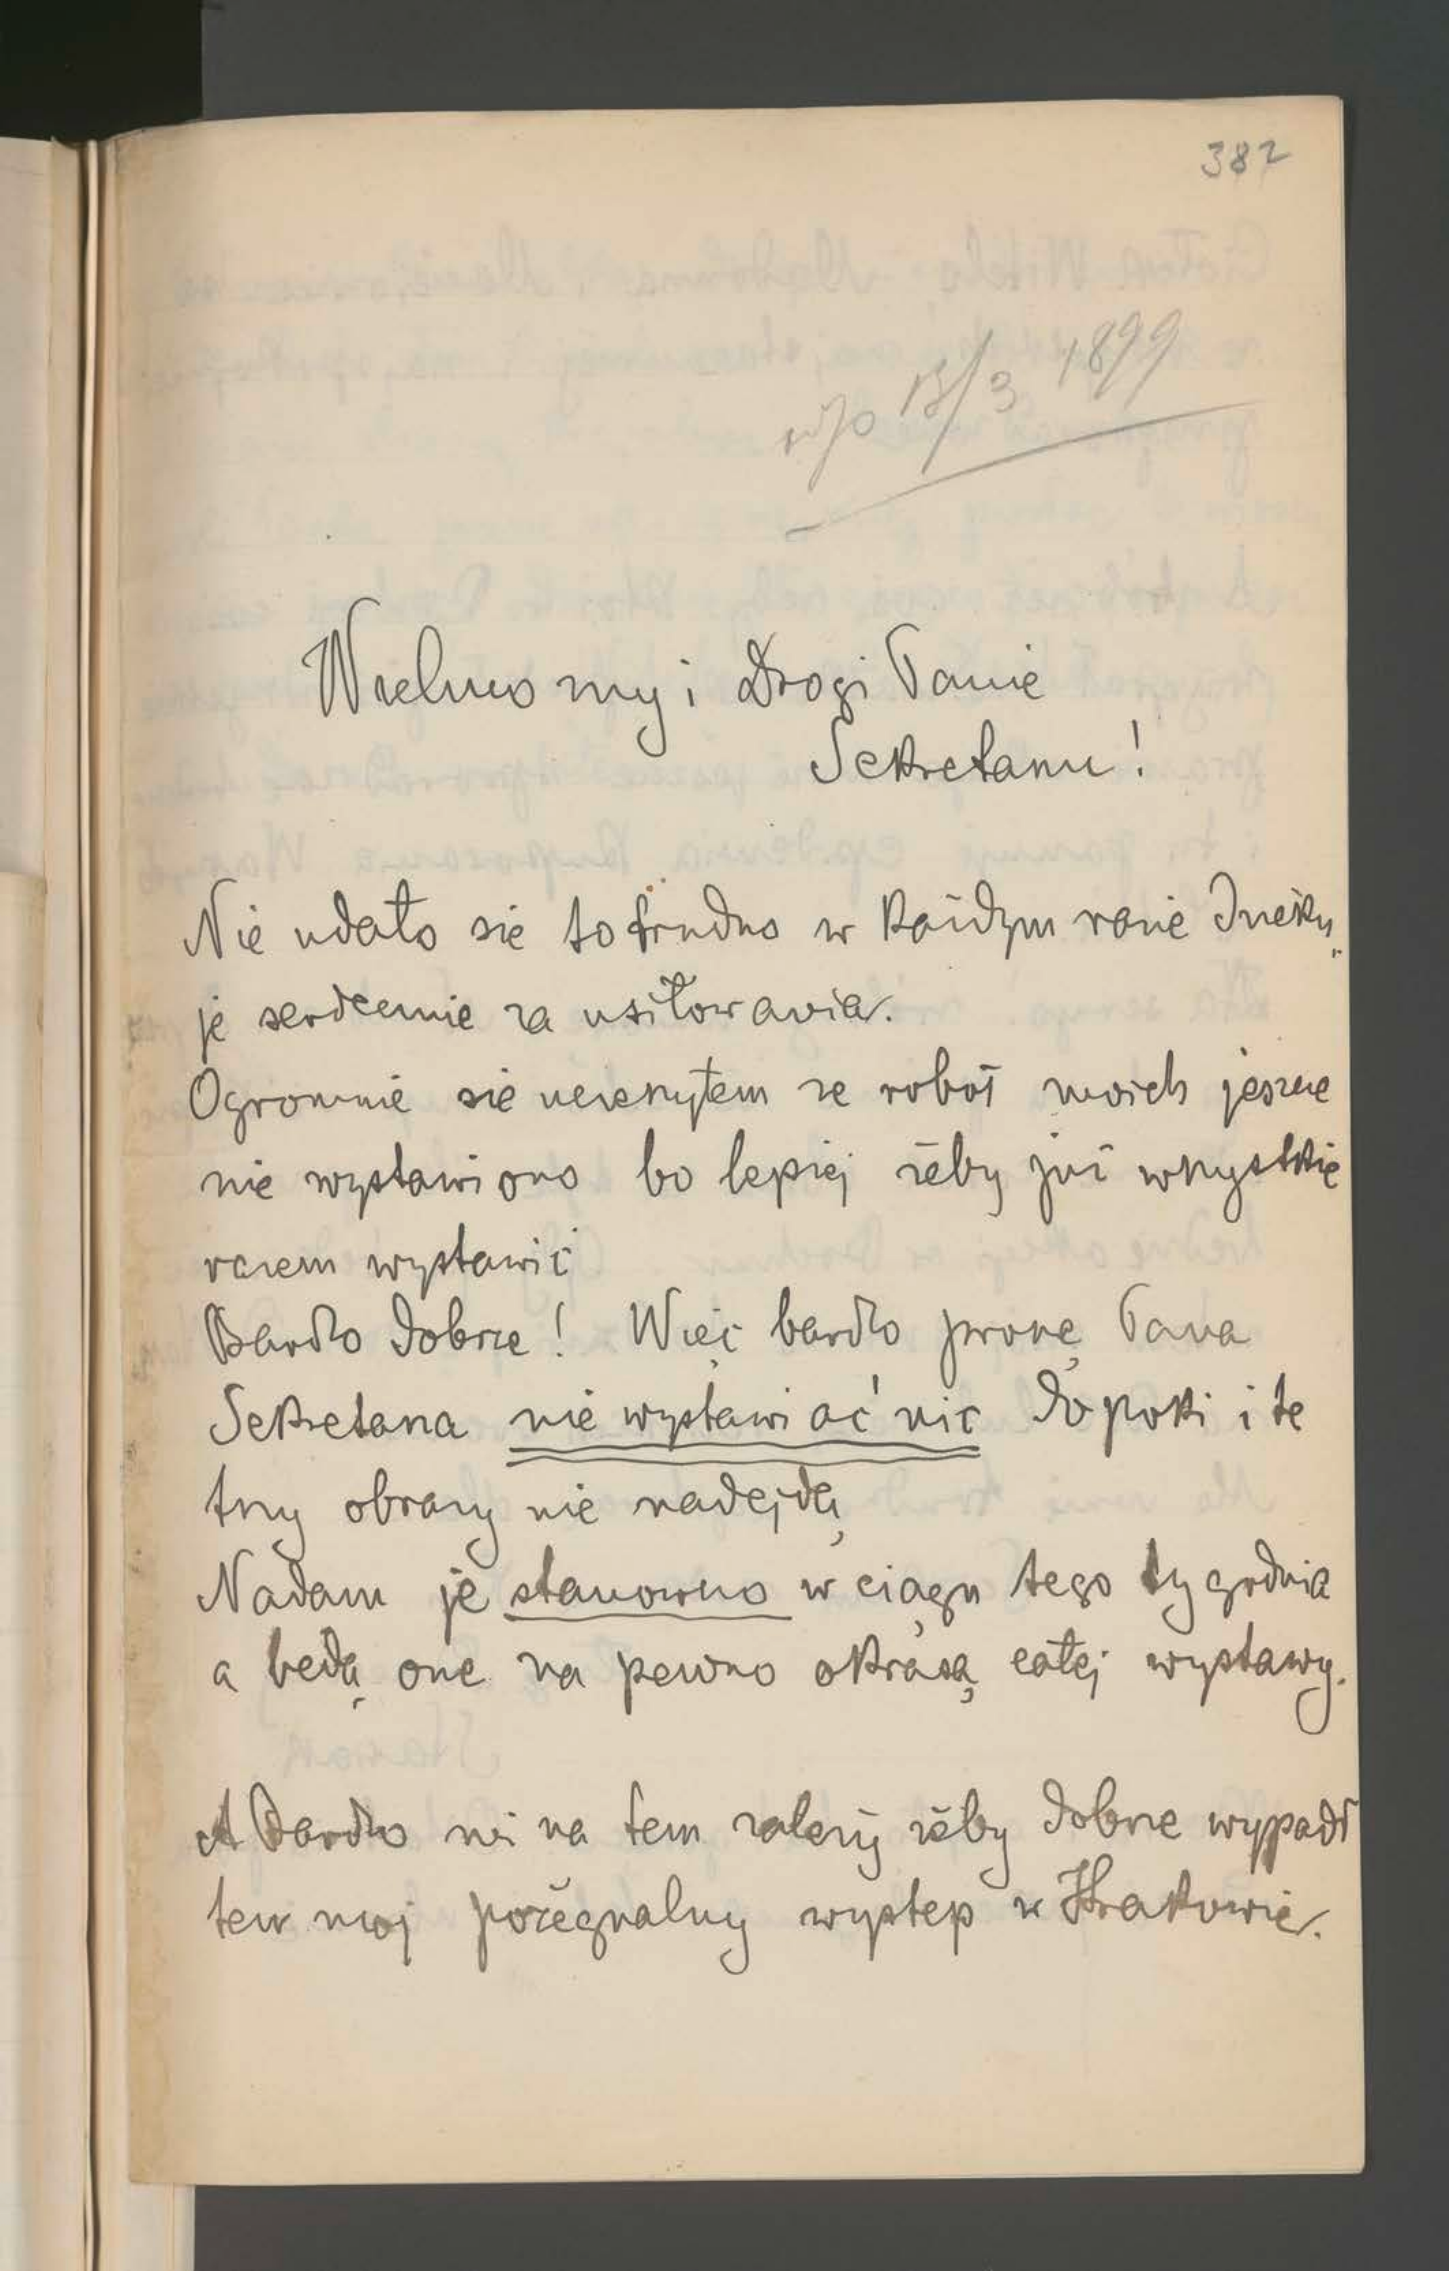 382
odp 13/3 1899
Wielmożny i Drogi Panie
Sekretarzu!
Nie udało się to trudno w każdym razie Dzięku„
je serdecznie za usiłowania.
Ogromnie się ucieszyłem ze robót moich jeszcze
nie wystawiono bo lepiej żeby już wszystkie
razem wystawić
Bardzo dobrze! Więc bardzo proszę Pana
Sekretarza nie wystawiać nic dopoki i te
trzy obrazy nie nadejdą
Nadam je stanowczo w ciągu tego tygodnia
a będą one na pewno okrasą całej wystawy.
A Bardzo mi na tem zależy żeby dobrze wypadł
ten moj pożegnalny występ w Krakowie.